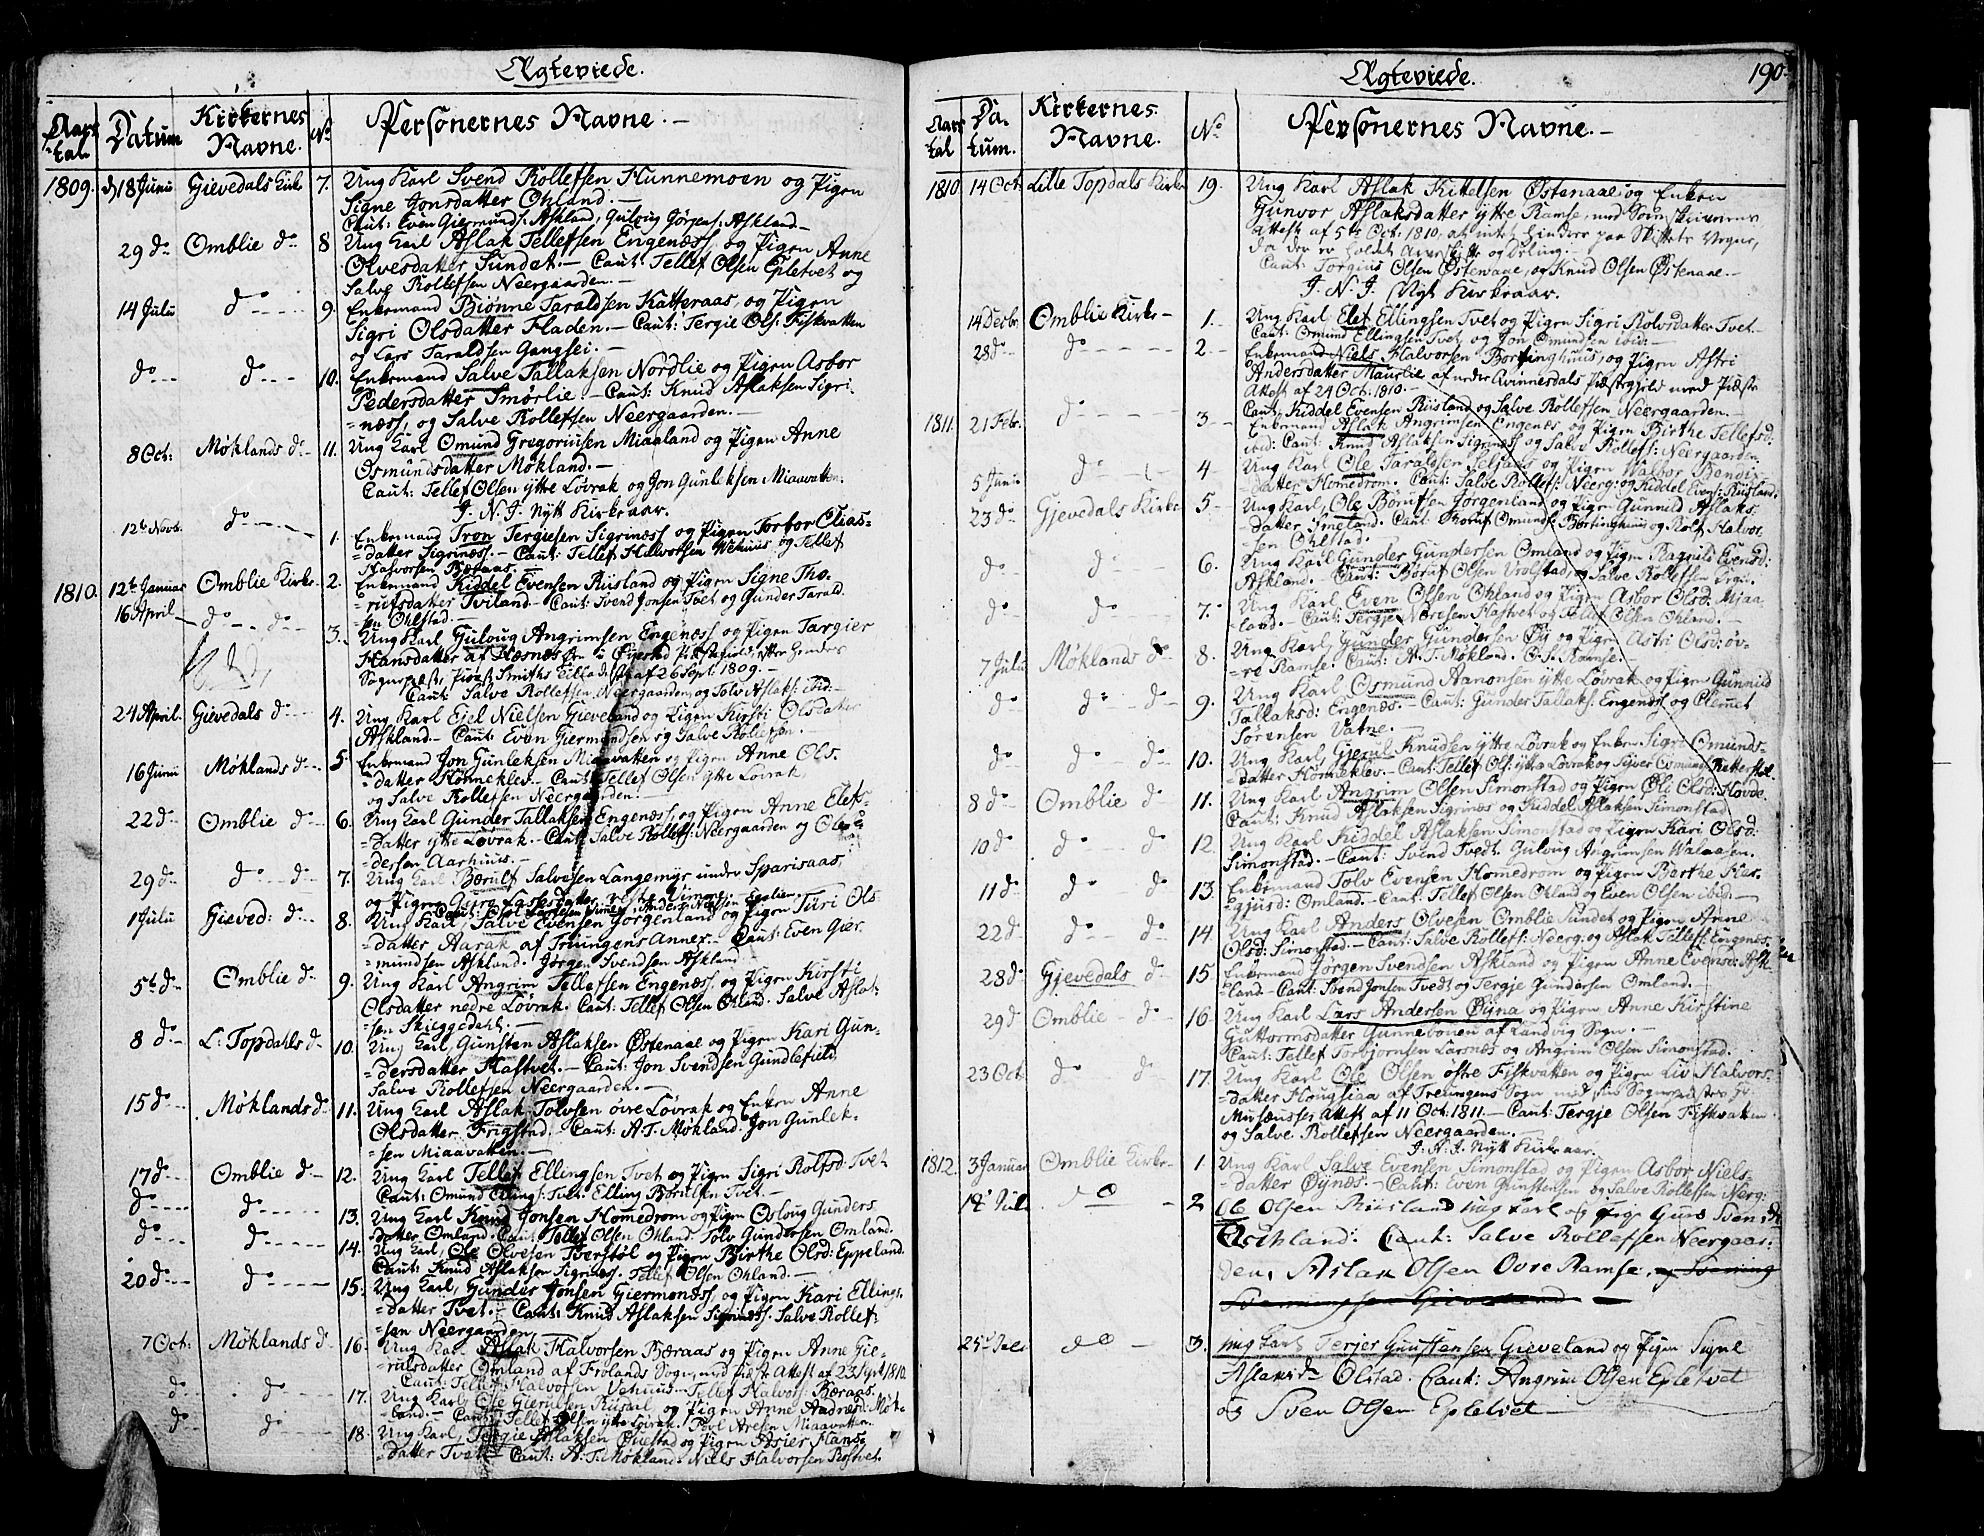 Ægteviede.
Aars tal. Datum Kirkernes Navne. No Personernes Navne.
1809. d 18 Junii Gievedals Kirk 7. Ung Karl Svend Rollefsen Hunnemoen og Pigen
Signe Jonsdatter Ohland.
Caut: Even Giermunds: Askland, Guloug Jörgens: Askland
29 do Omblie do 8 Ung Karl Aslak Tellefsen Engenæss og Pigen Anne
Olvesdatter Sundet. Caut: Tellef Olsen Epletvet og
Salve Rollefsen Neergaarden.
14 Julii do 9. Enkemand Biönne Taraldsen Katteraas og Pigen
Sigri Olsdatter Fladen. Caut: Tergie Ols: Fiskvatten
og Lars Taraldsen Gangsei.
do do 10. Enkemand Salve Tallaksen Nordlie og Pigen Asbor
Pedersdatter Smörlie Caut: Knud Aslaksen Sigri
=næss, og Salve Rollefsen Neergaarden.
8 Oct: Møklands do 11. Ung Karl Omund Gregoriussen Miaaland og Pigen Anne
Osmundsdatter Møkland.
Caut: Tellef Olsen ytte Lövrak og Jon Gunleksen Miaavatten.
J. N. J. Nytt Kirkeaar.
12te Novb. do 1. Enkemand Tron Tergiesen Sigrinæss og Pigen Torbor Elias-
=datter Sigrinæss. Caut: Tellef Halvorsen Vehuus og Tellef
Halvorsen Bæraas.
1810. 12te Januar Omblie Kirke 2. Enkemand Kiddel Evensen Risland og Pigen Signe Tho-
=rufsdatter Tviland Caut: Svend Jonsen Tvet og Gunder Tarald
sen Ohlstad.
16 April do do 3. Ung Karl Guloug Angrimsen Engenæss og Pigen Targier
Hansdatter af Næsnæs
Sogneprest, Smiths af 26 Sept. 1809.
Caut: Salve Rollefsen Neergaarden, og Tolv Aslaks: ibid:
24 April. Gievedals do 4. Ung Karl Ejel Nielsen Gieveland og Pigen Kirsti Olsdatter
Askland. Caut: Even Giermundsen og Salve Rollefsen.
16 Junii Møklands do 5. Enkemand Jon Gunleksen Miaavatten og Pigen Anne Ols.
=datter Hönneklev. Caut: Tellef Olsen ytte Lövrak,
og Salve Rollefsen Neergaarden.
22 do Omblie do 6. Ung Karl Gunder Tallaksen Engenæss, og Pigen Anne Elef-
=datter ytte Lövrak. Caut: Salve Rollefs: Neergaarden og
=dersen Aarhuus.
29 do do do 7. Ung Karl Børulf Salvesen Langemyr under Sparisaas
og Pigen
1 Julii Gieved: do 8. Ung Karl, Salve Evensen Jörgenland og Pigen Turi Ols
=datter Aarak af Triungens Annex. Caut: Even Gier.
=mundsen Askland. Jörgen Svendsen Askland
5te do Omblie do 9. Ung Karl Angrim Tellefsen Engenæss, og Pigen Kirsti
Olsdatter nedre Lövrak. Caut: Tellef Olsen Ohland. Salve Aslak:
=sen Skieggedahl.
8 do L: Topdahls do 10. Ung Karl, Gunsten Aslaksen Østenaae og Pigen Kari Gun-
=dersdatter Hastvet. Caut: Jon Svendsen Gundlefield
Salve Rollefsen Neergaarden.
15 do Møklands do 11. Ung Karl Aslak Tolvsen övre Lövrak og Enken Anne
Olsdatter Frigstad. Caut: A. T. Møkland. Jon Gunlek-
=sen Miaavatten.
17 do Omblie do 12. Ung Karl Tellef Ellingsen Tvet og Pigen Sigri Rolfsd: Tvet
Caut: Omund Ellings: Tvet. Elling Børulfsen Tvet.
do do 13. Ung Karl Knud Jonsen Homedrom og Pigen Osloug Gunders
datter Omland. Caut: Tellef Olsen Ohland. Tolv Gundersen Omland.
do do 14. Ung Karl, Ole Olvesen Tverstöl og Pigen Birthe Olsd: Eppeland.
Caut: Knud Aslaksen Sigrinæss. Tellef Olsen Ohland.
20 do do 15. Ung Karl, Gunder Jonsen Giermonæss, og Pigen Kari Ellings
=datter Tvet. Caut: Knud Aslaksen Sigrinæss. Salve Rollef-
sen Neergaarden
7 Oct: Møklands do 16. Ung Karl Aslak Halvorsen Bæraas og Pigen Anne Gie-
=rulsdatter Omland af Frolands Sogn, med Præste Attest af 23 Sept 1810.
Caut: Tellef Halvorsen Vehuus. Tellef Halvors: Bæraas.
do do 17. Ung Karl, Ole Gierulsen og Pigen Anne Andersd: Møk-
=land. Caut: Tellef Olsen ytte Lövrak. Povl Aresen Miaavatten.
do do 18. Ung Karl, Tergie Aslaksen Øiestad og Pigen Asier Hans-
=datter Tvet Caut: A. T. Møkland. Niels Halvorsen Rostvet.
Ægteviede. 190.
Aars tal Da-tum. Kirkernes Navne. No Personernes Navne.
1810 14 Oct Lille Topdals Kirke 19. Ung Karl Aslak Kittelsen Østenaae og Enken
Gunvor Aslaksdatter ytte Ramse, med Sorenskriverens
attest af 5te Oct: 1810, at intet hindrer paa Skiftets Vegne,
da der er holdt
Caut: Torgius Olsen Østenaae, og Knud Olsen Østenaae.
J. N. J. Nyt Kirkeaar.
14 Decbr Omblie Kirke 1. Ung Karl Elef Ellingsen Tvet og Pigen Sigri Rolvsdatter Tvet
Caut: Omund Ellingsen Tvet og Jon Omundsen ibid:
28 do do 2. Enkemand Niels Halvorsen Bortinghuus, og Pigen Astri
Andersdatter Maurlie af nedre Qvinnesdals Præstegjeld med Præste
Attest af 24 Oct: 1810.
Caut, Kiddel Evensen Riisland og Salve Rollefsen Neergaarden.
1811. 21 Febr. do 3 Enkemand Aslak Angrimsen Engenæs og Pigen Birthe Tellefsd:
ibid: Caut: Knud Aslaksen Sigrinæss og Salve Rollefs: Neergaarden
5 Junii do 4 Ung Karl Ole Taraldsen Seljaas og Pigen Valbor Bendix-
datter Homedrom. Caut: Salve Rollefs: Neerg: og Kiddel Evens: Riisland.
23 do Gjevedals Kirke 5 Ung Karl, Ole Børulfsen Jörgenland og Pigen Gunnild Aslaks-
=datter Smeland. Caut: Børulf Omunds: Bortinghuus og Rolf Halvor
sen Ohlstad.
do do 6. Ung Karl Gunder Gundersen Omland og Pigen Ragnild Evensd:
Askland. Caut: Børulf Olsen Vrolstad, og Salve Rollefsen
do do 7. Ung Karl Even Olsen Ohland og Pigen Asbor Olsd: Miaa
land. Caut: Tergje Næresen Hastvet og Tellef Olsen Ohland.
7 Julii Møklands do 8. Ung Karl, Gunder Gundersen Øy og Pigen Astri Olsd: öv-
re Ramse. Caut: A. T. Møkland. O. S. Ramse.
do do do 9. Ung Karl Osmund Aanonsen ytte Lövrak og Pigen Gunnild
Tallaksd: Engenæs. Caut: Gunder Tallaks: Engenæs og Clemet
Sørensen Vatne.
do do do 10. Ung Karl Gierul Knudsen ytte Lövrak og Enken Sigri Omunds-
=datter Hönneklev. Caut: Tellef Ols: ytte Lövrak og Sejver Osmunds:
8 do Omblie do 11. Ung Karl Angrim Olsen Simonstad og Pigen Oli Olsd: Hovde.
Caut: Knud Aslaksen Sigrinæs og Kiddel Aslaksen Simonstad
10 do do do 12. Ung Karl Kiddel Aslaksen Simonstad og Pigen Kari Olsd:
Simonstad. Caut: Svend Tvedt. Gulovg Angrimsen Walaasen.
11 do do do 13. Enkemand Tolv Evensen Homedrom og Pigen Berthe Her-
=gjusd: Omland. Caut: Tellef Olsen Ohland og Even Olsen ibid:
22 do do do 14. Ung Karl Anders Olvesen Omblie Sundet og Pigen Anne
Olsd: Simonstad. Caut: Salve Rollefs: Neerg: og Aslak Tellefs: Engenæs.
28 do Gjevedals do 15 Enkemand Jörgen Svendsen Askland og Pigen Anne Evensd: Ask
land. Caut: Svend Jonsen Tvedt og Tergje Gundersen Omland.
29 d Omblie do 16 Ung Karl Lars Andersen Øyna og Pigen Anne Kirstine
Guttormsdatter Gunnebouen af Landvig Sogn.
Caut: Tellef Torbjornsen Larsnæs og Angrim Olsen Simonstad.
23 Oct do do 17. Ung Karl Ole Olsen ostre Fiskvatten og Pigen Liv Halvors-
=datter Hougsiaa af Treungens Sogn med Sogneprest
Musæusses Attest af 11 Oct: 1811. Caut: Tergje Olsen Fiskvatten
og Salve Rollefsen Neergaarden.
J. N. J. Nytt Kirkeaar.
1812. 3 Januar Omblie Kirke 1. Ung Karl Salve Evensen Simonstad og Pigen Asbor Niels-
=datter Øynæs. Caut: Even Gunstensen og Salve Rollefsen Neerg:
14d Juli do 2 Ole Olsen Riisland ung karl og Pige Guro Svensd
Aschland. Caut: Salve Rollefsen Neergaar:
den, Aslak Olsen Ovre Ramse, og Svening
Sveningsen Gieveland
25d Juli do 3. ung karl Terjer Gunstensen Gieveland og Pigen Signe
Aslaksd: Olstad. Caut: Angrim Olsen Epletvet
og Sven Olsen Epletvet